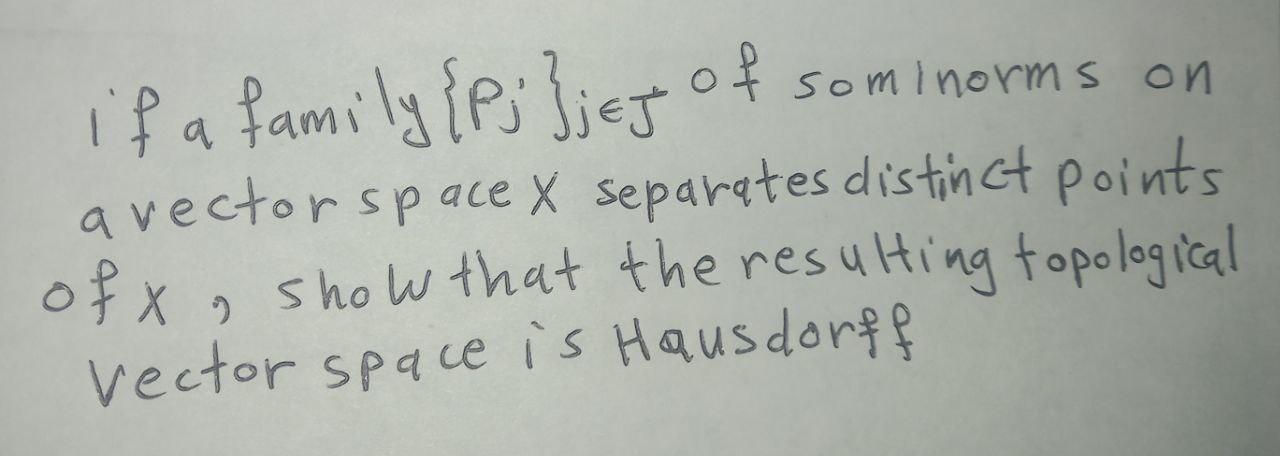 if a family {Pj}j∈J of sominorms on
a vector space X separates distinct points
of X, show that the resulting topological
vector space is Hausdorff